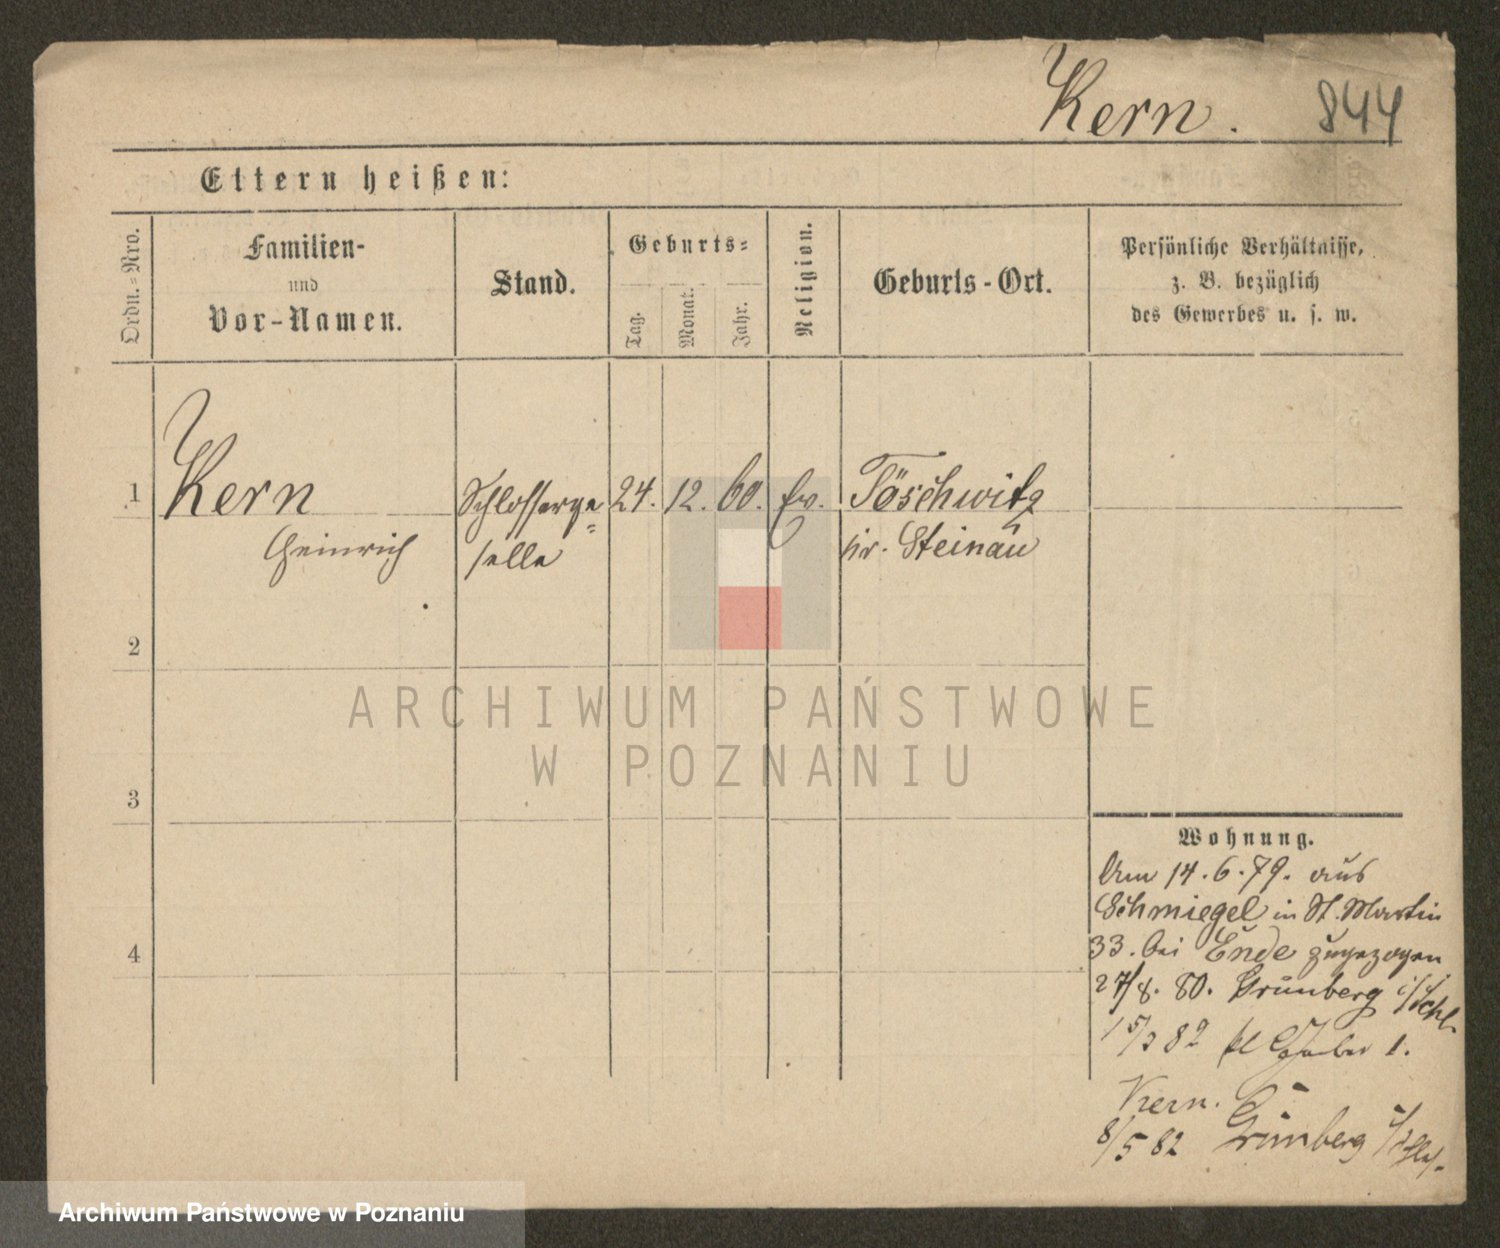 Kern. 844
Eltern heißen:
Ordn.-Nro.
Familien-
und
Vor-Namen.
Stand.
Geburts-
Tag.
Monat.
Jahr.
Religion.
Geburts-Ort.
Persönliche Verhältnisse,
z. B. bezüglich
des Gewerbes u. s. w.
1 Kern Schlosserge= 24. 12. 60. Ev. Töschwitz
Heinrich selle Kr. Steinau
2
3
4
Wohnung.
Am 14.6.79. aus
Schmiegel in St. Martin
33. bei Ende zugezogen
27/8. 80. Grünberg i/Schl.
15/3 82 kl 1.
Kern.
8/5 82 Grünberg i/Schles.
ARCHIWUM PAŃSTWOWE
W POZNANIU
Archiwum Państwowe w Poznaniu